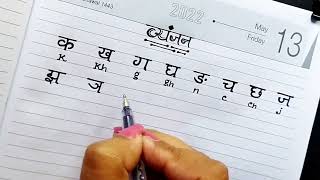 2022
May
Friday
13
व्यंजन
क ख ग घ ङ च छ ज
K Kh g gh n c ch j
झ ञ